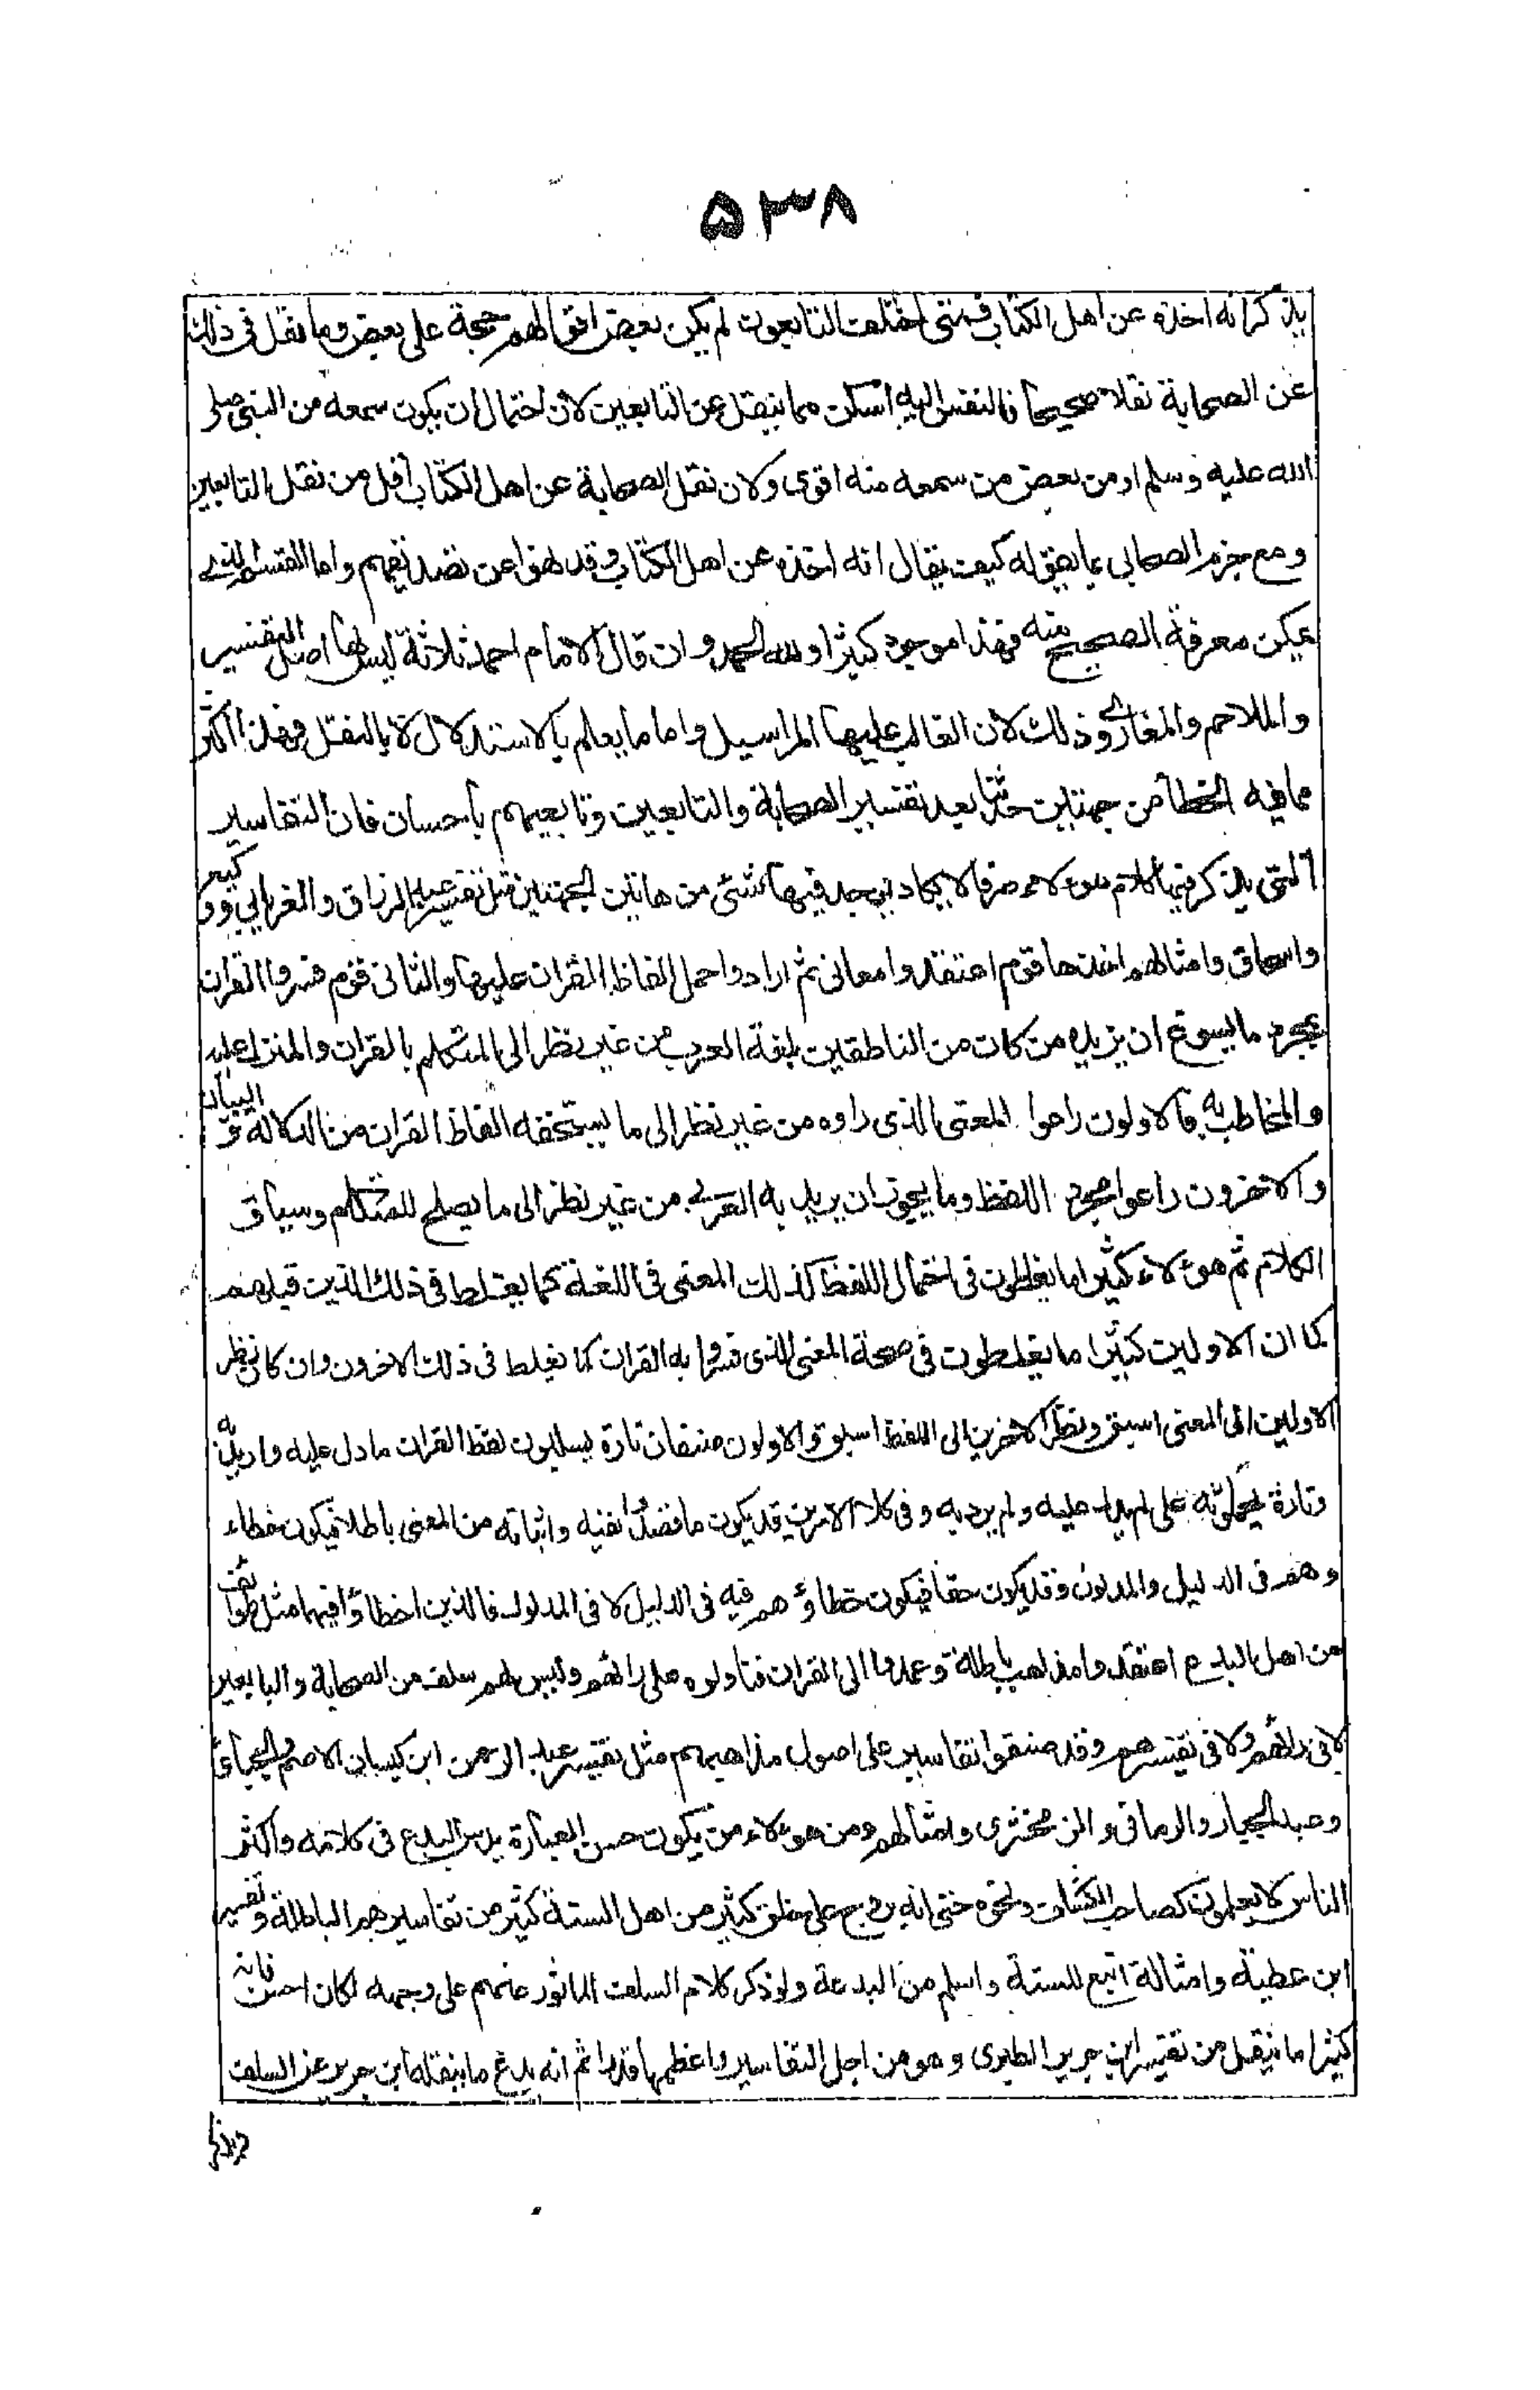 ۵۳۸
يذكر انه اخذه عن اهل الكتاب فمتى اختلف التابعون لم يكن بعض اقوالهم حجة على بعض وما نقل فى ذلك
عن الصحابة نقلا صحيحا فالنفس اليه اسكن مما ينقل عن التابعين لان احتمال ان يكون سمعه من النبى صلى
الله عليه وسلم او من بعض من سمعه منه اقوى ولان نقل الصحابة عن اهل الكتاب اقل من نقل التابعين
ومع جزم الصحابى بما يقوله كيف يقال انه اخذه عن اهل الكتاب وقد نهوا عن تصديقهم واما القسم الذى
يمكن معرفة الصحيح منه فهذا موجود كثيرا ولله الحمد وان قال الامام احمد ثلاثة ليس لها اصل التفسير
والملاحم والمغازى وذلك لان الغالب عليها المراسيل واما ما يعلم بالاستدلال لا بالنقل فهذا اكثر
ما فيه الخطأ من جهتين حدثتا بعد تفسير الصحابة والتابعين وتابعيهم باحسان فان التفاسير
التى يذكر فيها كلام هؤلاء صرفا لا يكاد يوجد فيها شئ من هاتين الجهتين مثل تفسير عبد الرزاق والفريابى ووكيع
واسحاق وامثالهم احدها قوم اعتقدوا معانى ثم ارادوا حمل الفاظ القران عليها والثانى قوم فسروا القران
بمجرد ما يسوغ ان يريده من كان من الناطقين بلغة العرب من غير نظر الى المتكلم بالقران والمنزل عليه
والمخاطب به فالاولون راعوا المعنى الذى راوه من غير نظر الى ما يستحقه الفاظ القران من الدلالة والبيان
والاخرون راعوا مجرد اللفظ وما يجوز ان يريد به العربى من غير نظر الى ما يصلح للمتكلم وسياق
الكلام ثم هؤلاء كثيرا ما يغلطون فى احتمال اللفظ لذلك المعنى فى اللغة كما يغلط فى ذلك الذين قبلهم
كما ان الاولين كثيرا ما يغلطون فى صحة المعنى الذى فسروا به القران كما يغلط فى ذلك الاخرون وان كان نظر
الاولين الى المعنى اسبق ونظر الاخرين الى اللفظ اسبق والاولون صنفان تارة يسلبون لفظ القران ما دل عليه واريد به
وتارة يحملونه على لم يدل عليه ولم يرد به وفى كلا الامرين قد يكون ما قصدوا نفيه واثباته من المعنى باطلا فيكون خطاء
وهم فى الدليل والمدلول وقد يكون حقا فيكون خطاؤهم فيه فى الدليل لا فى المدلول فالذين اخطاؤا فيهما مثل طوائف
من اهل البدع اعتقدوا مذاهب باطلة وعمدوا الى القران فتاولوه على رائهم وليس لهم سلف من الصحابة والتابعين
لا فى رائهم ولا فى تفسيرهم وقد صنفوا تفاسير على اصول مذاهبهم مثل تفسير عبد الرحمن ابن كيسان الاصم والجبائى
وعبد الجبار والرمانى والزمخشرى وامثالهم ومن هؤلاء من يكون حسن العبارة يدس البدع فى كلامه واكثر
الناس لا يعلمون كصاحب الكشاف ونحوه حتى انه يروج على خلق كثير من اهل السنة كثير من تفاسيرهم الباطلة وتفسير
ابن عطية وامثاله اتبع للسنة واسلم من البدعة ولو ذكر كلام السلف الماثور عنهم على وجهه لكان احسن فانه
كثيرا ما ينقل من تفسير ابن جرير الطبرى وهو من اجل التفاسير واعظمها قدرا ثم انه يدع ما ينقله ابن جرير عن السلف